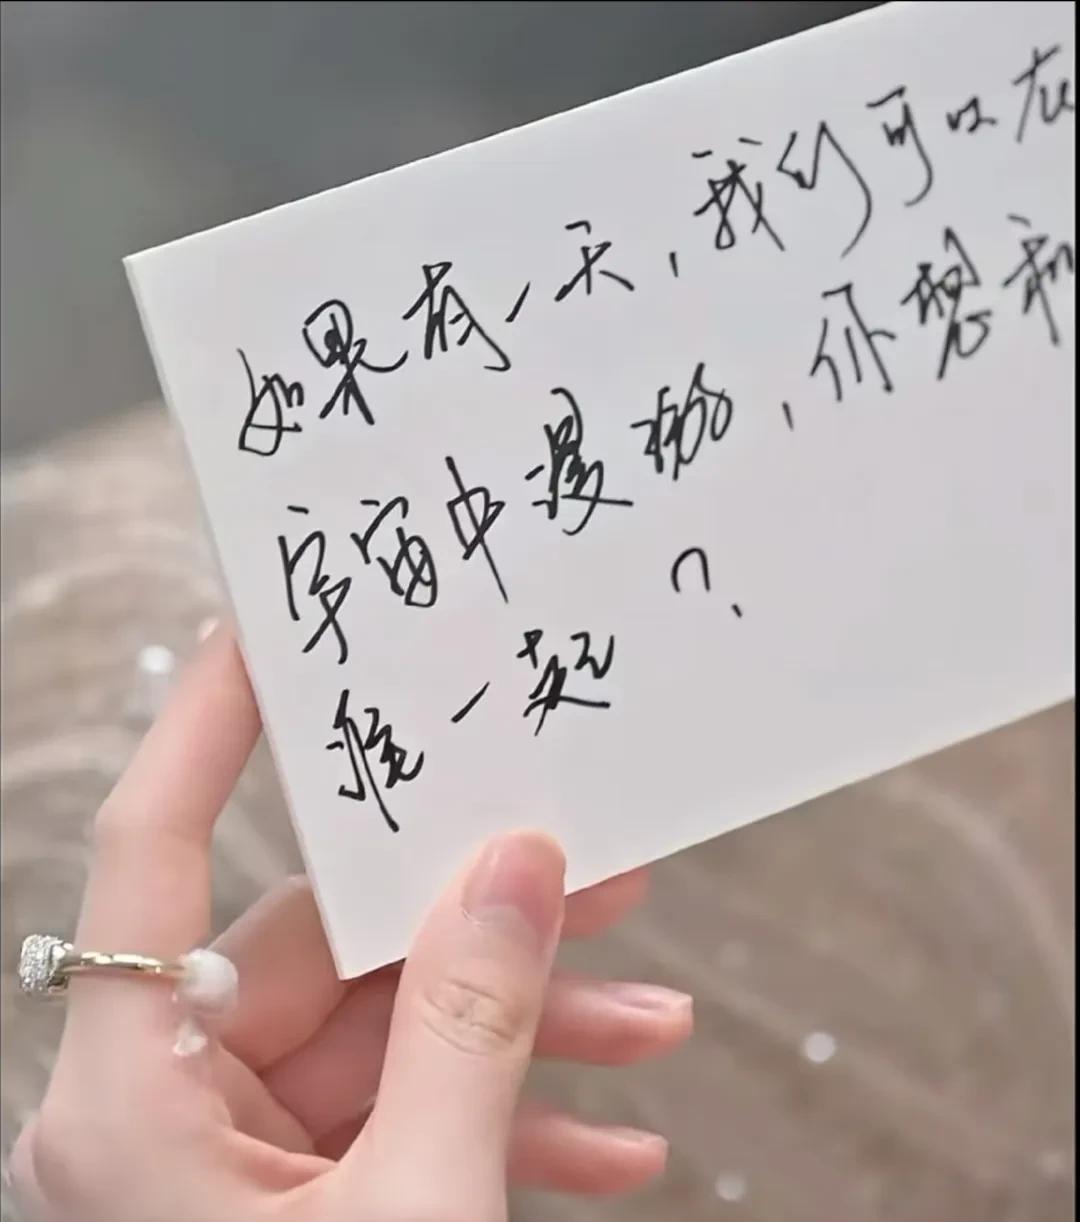 如果有一天,我们可以在
宇宙中漫游,你想和
谁一起?